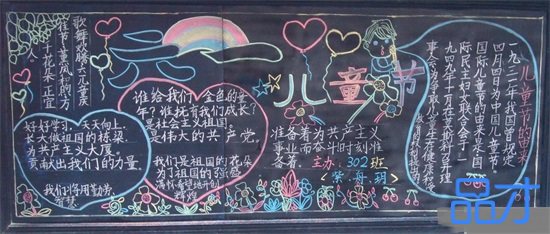 歌舞欢腾共 儿童庆
佳节 董凤松的方
十花朵 正宜
好好学习,天天向上,
本大做祖国的栋梁,
为共产主义大厦,
贡献出我们的力量,
我们将用勤劳,
智慧
谁给我们 金色的童
年?谁抚育我们成长?
是社会主义祖国,
是伟大的共产党
我们是祖国的花朵
为了祖国的
满怀希望地开创
儿童节
准备着为共产主义
事业而奋斗时刻准
备着。
主办:302班
儿童节的由来
一九三一年我国曾规定
四月四日为中国儿童节。
国际儿童节的由来是全国
际民主妇女联合会于一
九四九年十一月在莫斯科召开
事会为争取儿童生存健康
品才